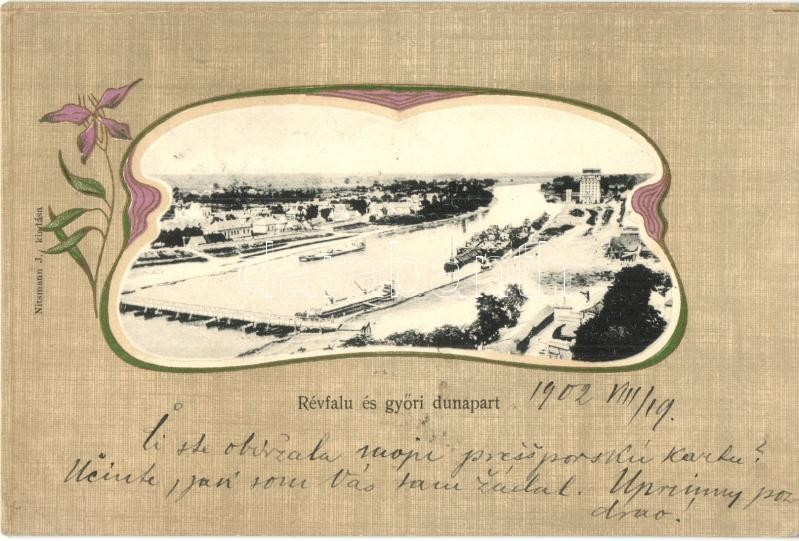 Nitsmann J., kiadása
darabanth
Révfalu és győri dunapart
1902 VIII/19.
Či ste obdržala moju prešporskú kartu?
Učinte, jak som Vás tam žádal. Uprimny poz-
drav!